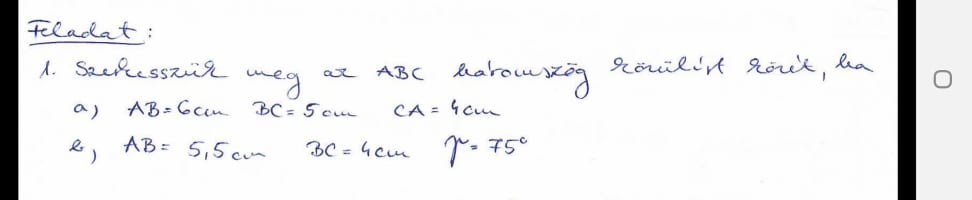 Feladat:
1. Szerkesszük meg az ABC háromszög körülírt körét, ha
a) AB = 6cm BC = 5cm CA = 4cm
b) AB = 5,5cm BC = 4cm γ = 75°